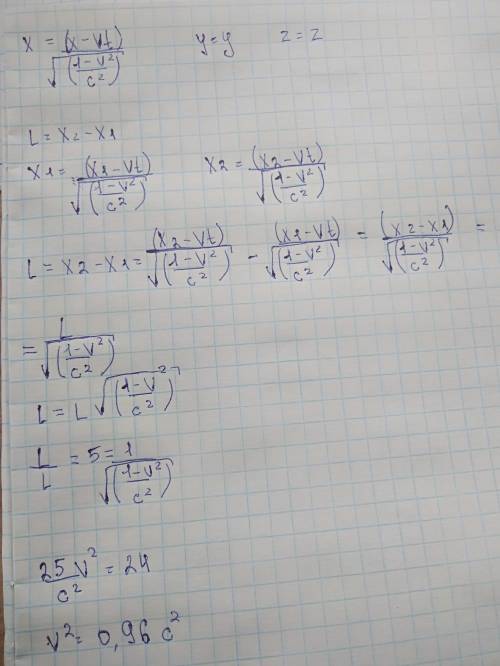 x = (x-Vt) / √((1-V²)/c²)   y=y   z=z
L = x2-x1
x1 = (x1-Vt) / √((1-V²)/c²)   x2 = (x2-Vt) / √((1-V²)/c²)
L = x2-x1 = (x2-Vt) / √((1-V²)/c²) - (x1-Vt) / √((1-V²)/c²) = (x2-x1) / √((1-V²)/c²) =
= L / √((1-V²)/c²)
L = L √((1-V²)/c²)
L/L = 5 = 1 / √((1-V²)/c²)
25V²/c² = 24
V² = 0,96 c²